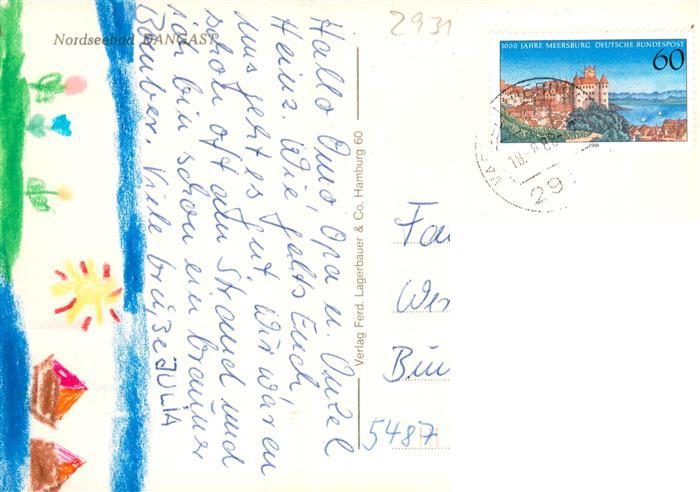 Nordseebad DANGAST
Hallo Oma, Opa u. Onkel
Heinz. Wie gehts Euch
uns geht es gut. Wir waren
schon oft am Strand und
ich bin schon ein brauner
Viele Grüße JULIA
Verlag Ferd. Lagerbauer & Co. Hamburg 60
2931
1000 JAHRE MEERSBURG DEUTSCHE BUNDESPOST
60
1988
29
Fa
We
5487